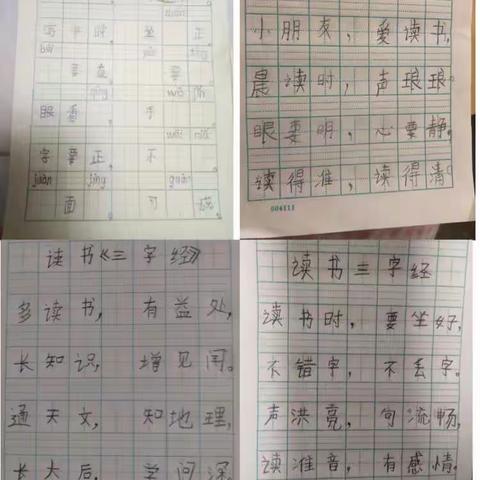 写书时 坐 正
bǎi
要直
眼看 手
字要正 不
juàn jìng
面 可
小朋友，爱读书，
晨读时，声琅琅。
眼要明，心要静，
读得准，读得清。
读书《三字经》
多读书，有益处，
长知识，增见闻。
通天文，知地理，
长大后，学问深。
读书三字经
读书时，要坐好，
不错字，不丢字。
声洪亮，句流畅，
读准音，有感情。